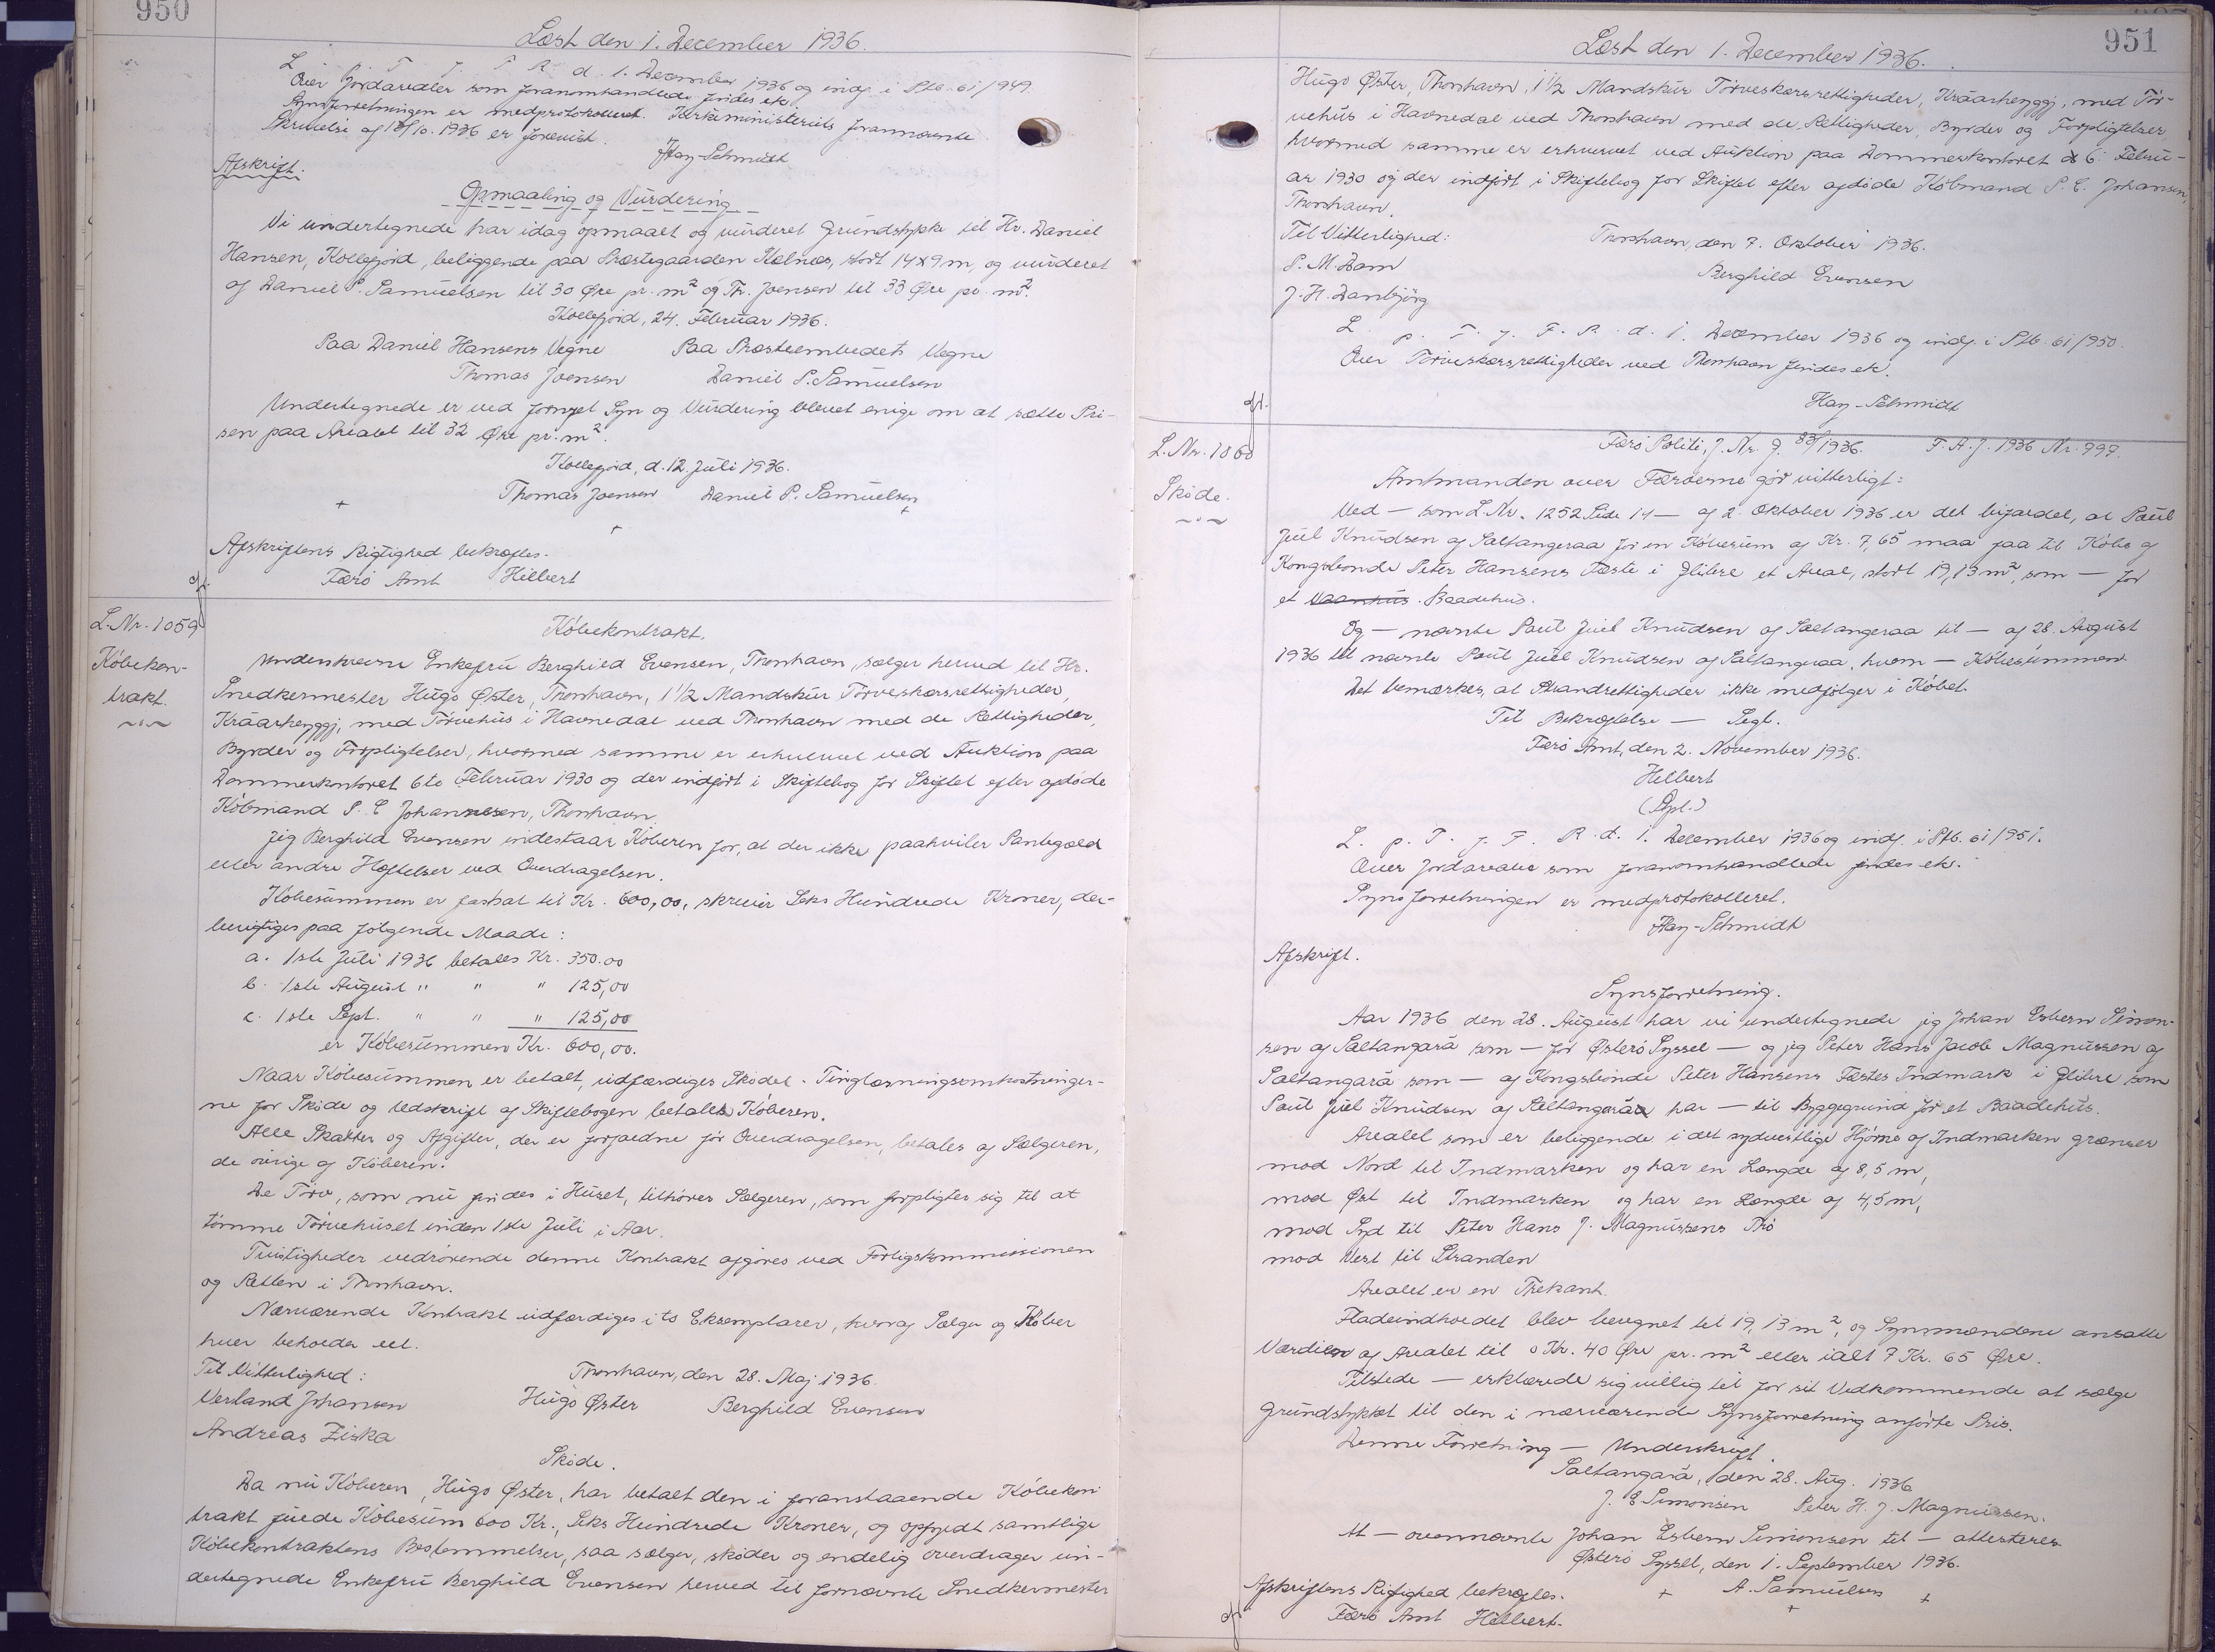 950
Læst den 1. December 1936.
L. p. T. f. F. R. d. 1. December 1936 og indf. i Ptb. 61/949.
Over Jordarealer som foranomhandlede findes ek.
Synsforretningen er medprotokolleret. Kirkeministeriets forannævnte
Skrivelse af 13/10. 1936 er forevist.
Hay-Schmidt
Afskrift.
Opmaaling og Vurdering
Vi undertegnede har idag opmaalt og vurderet Grundstykke til Hr. Daniel
Hansen, Kollefjord, beliggende paa Præstegaarden Kalnæs, stort 14x9 m, og vurderet
af Daniel P. Samuelsen til 30 Øre pr. m² og Th. Joensen til 33 Øre pr. m².
Kollefjord, 24. Februar 1936.
Paa Daniel Hansens Vegne Paa Præsteembedets Vegne
Thomas Joensen Daniel P. Samuelsen
Undertegnede er ved fornyet Syn og Vurdering blevet enige om at sætte Pri-
sen paa Arealet til 32 Øre pr. m².
Kollefjord, d. 12. Juli 1936.
Thomas Joensen Daniel P. Samuelsen
Afskriftens Rigtighed bekræftes.
Færø Amt Hilbert
L. Nr. 1059
Købekon-
trakt.
Købekontrakt.
Underskrevne Enkefru Berghild Evensen, Thorshavn, sælger herved til Hr.
Snedkermester Hugo Øster, Thorshavn, 1 1/2 Mandskur Tørveskærsrettigheder,
Kráarheyggj, med Tørvehus i Havnedal ved Thorshavn med de Rettigheder,
Byrder og Forpligtelser, hvormed samme er erhvervet ved Auktion paa
Dommerkontoret 6te Februar 1930 og der indført i Skiftebog for Skiftet efter afdøde
Købmand P. C. Johannesen, Thorshavn.
Jeg Berghild Evensen indestaar Køberen for, at der ikke paahviler Pantegæld
eller andre Hæftelser ved Overdragelsen.
Købesummen er fastsat til Kr. 600,00, skriver Seks Hundrede Kroner, der
berigtiges paa følgende Maade:
a. 1ste Juli 1936 betales Kr. 350.00
b. 1ste August " " " 125,00
c. 1ste Sept. " " " 125,00
er Købesummen Kr. 600,00.
Naar Købesummen er betalt, udfærdiges Skødet. Tinglæsningsomkostninger-
ne for Skøde og Udskrift af Skiftebogen betales Køberen.
Alle Skatter og Afgifter, der er forfaldne før Overdragelsen, betales af Sælgeren,
de øvrige af Køberen.
De Tørv, som nu findes i Huset, tilhører Sælgeren, som forpligter sig til at
tømme Tørvehuset inden 1ste Juli i Aar.
Tvistigheder vedrørende denne Kontrakt afgøres ved Forligskommissionen
og Retten i Thorshavn.
Nærværende Kontrakt udfærdiges i to Eksemplarer, hvoraf Sælger og Køber
hver beholder eet.
Til Vitterlighed: Thorshavn, den 28. Maj 1936.
Verland Johansen Hugo Øster Berghild Evensen
Andreas Ziska
Skøde.
Da nu Køberen, Hugo Øster, har betalt den i foranstaaende Købekon
trakt Købesum 600 Kr., Seks Hundrede Kroner, og opfyldt samtlige
Købekontraktens Bestemmelser, saa sælger, skøder og endelig overdrager un-
dertegnede Enkefru Berghild Evensen herved til fornævnte Snedkermester
951
Læst den 1. December 1936.
Hugo Øster, Thorshavn, 1 1/2 Mandskur Tørveskærsrettigheder, Kráarheyggj, med Tør-
vehus i Havnedal ved Thorshavn med de Rettigheder, Byrder og Forpligtelser
hvormed samme er erhvervet ved Auktion paa Dommerkontoret d. 6. Febru-
ar 1930 og der indført i Skiftebog for Skiftet efter afdøde Købmand P. C. Johansen,
Thorshavn.
Til Vitterlighed: Thorshavn, den 7. Oktober 1936.
P. M. Dam Berghild Evensen
J. H. Danbjørg
L. p. T. f. F. R. d. 1. December 1936 og indf. i Ptb. 61/950.
Over Tørveskærsrettigheder ved Thorshavn findes ek.
Hay-Schmidt
L. Nr. 1060
Skøde.
Færø Politi, J. Nr. J. 33/1936. F. A. J. 1936 Nr. 997.
Amtmanden over Færøerne gør vitterligt:
Ved — som L. Nr. 1252 Side 14 — af 2. Oktober 1936 er det bifaldet, at Poul
Juel Knudsen af Saltangeraa for en Købesum af Kr. 7,65 maa faa til Købs af
Kongsbonde Peter Hansens Fæste i Glibre et Areal, stort 19,13 m², som — for
et Vaanhus. Baadehus.
Og — nævnte Poul Juel Knudsen af Saltangeraa til — af 28. August
1936 til nævnte Poul Juel Knudsen af Saltangeraa, hvem — Købesummen
Det bemærkes, at Strandrettigheder ikke medfølger i Købet.
Til Bekræftelse — Segl.
Færø Amt, den 2. November 1936.
Hilbert
L. p. T. f. F. R. d. 1. December 1936 og indf. i Ptb. 61/951.
Over Jordarealer som foranomhandlede findes ek.
Synsforretningen er medprotokolleret.
Hay-Schmidt
Afskrift.
Synsforretning.
Aar 1936 den 28. August har vi undertegnede jeg Johan Esbern Simon-
sen af Saltangará som — for Østerø Syssel — og jeg Peter Hans Jacob Magnussen af
Saltangará som — af Kongsbonde Peter Hansens Fæstes Indmark i Glibre som
Poul Juel Knudsen af Saltangará har — til Byggegrund for et Baadehus.
Arealet som er beliggende i det sydvestlige Hjørne af Indmarken grænser
mod Nord til Indmarken og har en Længde af 8,5 m,
mod Øst til Indmarken og har en Længde af 4,5 m,
mod Syd til Peter Hans J. Magnussens Trø
mod Vest til Stranden
Arealet er en Trekant.
Fladeindholdet blev beregnet til 19,13 m², og Synsmændene ansatte
Værdien af Arealet til 0 Kr. 40 Øre pr. m² eller ialt 7 Kr. 65 Øre.
Tilstede — erklærede sig villig til for sit Vedkommende at sælge
Grundstykket til den i nærværende Synsforretning anførte Pris.
Denne Forretning — Underskrift.
Saltangará, den 28. Aug. 1936
J. E. Simonsen Peter H. J. Magnussen.
At — ovennævnte Johan Esbern Simonsen til — attesteres
Østerø Syssel, den 1. September 1936.
A. Samuelsen
Afskriftens Rigtighed bekræftes.
Færø Amt Hilbert.